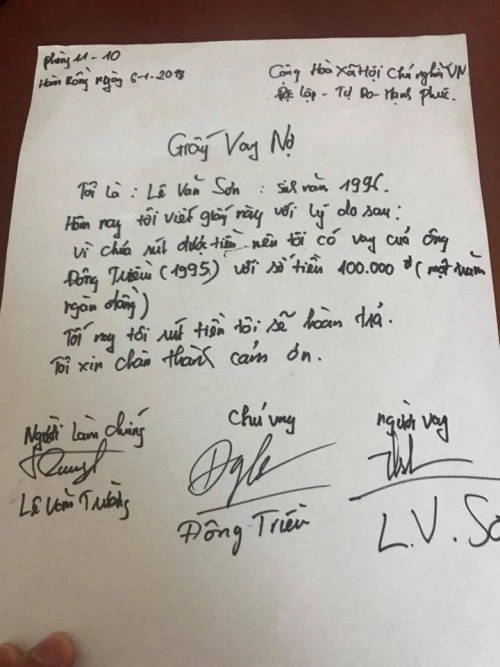 phòng 11-10
Hàm Rồng ngày 6-1-2018
Cộng Hoà Xã Hội Chủ nghĩa VN
Độc lập - Tự Do - Hạnh Phúc.
Giấy Vay Nợ
Tôi là : Lê Văn Sơn : sinh năm 1996.
Hôm nay tôi viết giấy này với lý do sau:
vì chưa rút được tiền nên tôi có vay của ông
Đông Triều (1995) với số tiền 100.000 đ (một trăm
ngàn đồng)
Tối nay tôi rút tiền tôi sẽ hoàn trả.
Tôi xin chân thành cảm ơn.
Người làm chứng
Lê Văn Trường
Chủ vay
Đông Triều
người vay
L.V.Sơ